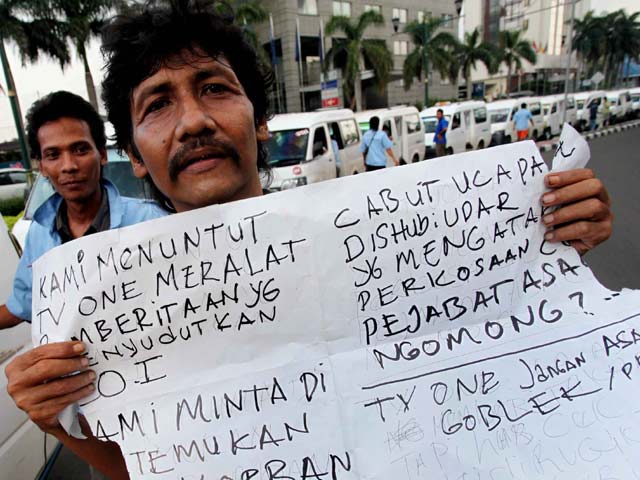 KAMI MENUNTUT
TV ONE MERALAT
PEMBERITAAN YG
ENYUDUTKAN
O.I
AMI MINTA DI
TEMUKAN
KORBAN
CABUT UCAPA
DISHUB: UDAR
YG MENGATA
PERKOSAAN
PEJABAT ASA
NGOMONG?
TV ONE JANGAN ASA
GOBLEK /